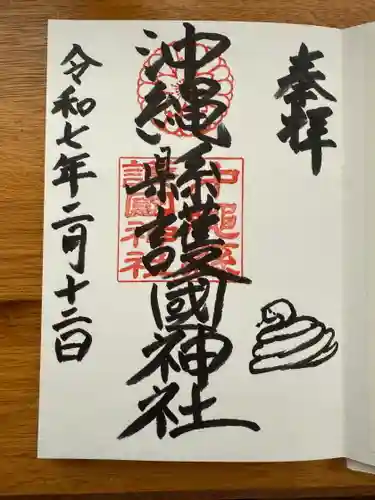 奉拝
沖縄縣護國神社
沖縄縣護國神社
令和七年二月十二日